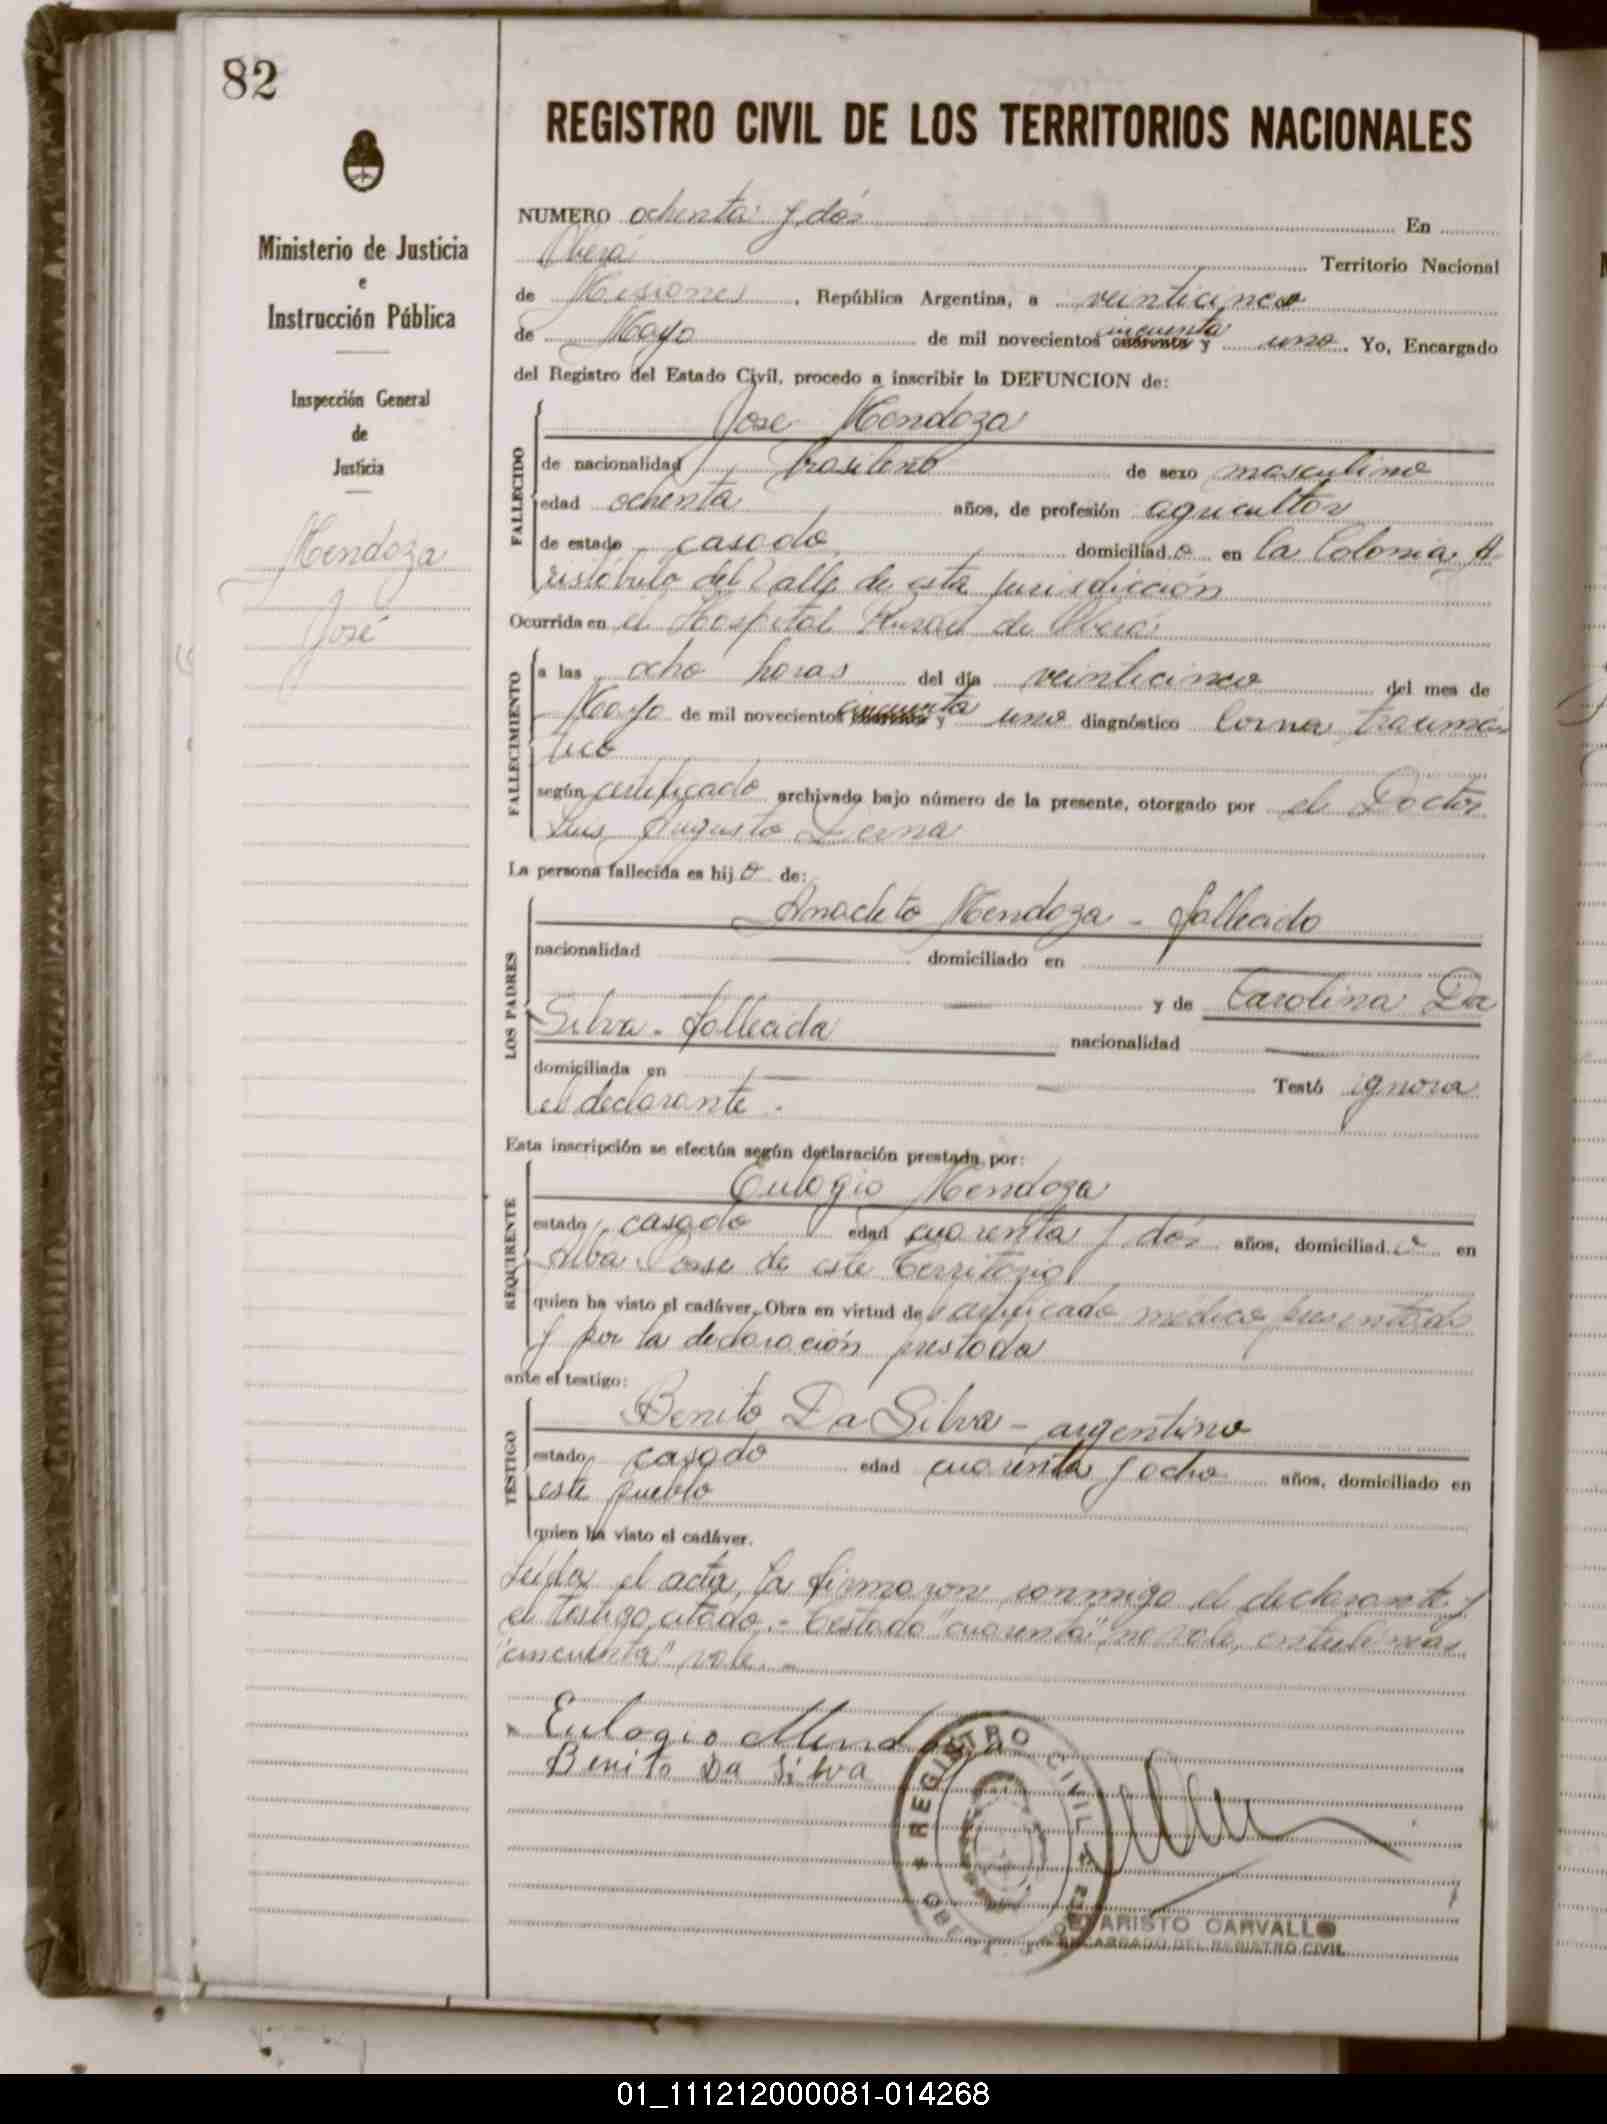 82
REGISTRO CIVIL DE LOS TERRITORIOS NACIONALES
Ministerio de Justicia
e
Instrucción Pública
Inspección General
de
Justicia
Mendoza
José
NUMERO ochenta y dós En
Oberá Territorio Nacional
de Misiones, República Argentina, a veinticinco
de Mayo de mil novecientos cincuenta cuarenta y uno. Yo, Encargado
del Registro del Estado Civil, procedo a inscribir la DEFUNCION de:
FALLECIDO
Jose Mendoza
de nacionalidad brasileño de sexo masculino
edad ochenta años, de profesión agricultor
de estado casado domiciliad.o en la Colonia A-
ristóbulo del Valle de esta jurisdicción
Ocurrida en el Hospital Rural de Oberá
FALLECIMIENTO
a las ocho horas del día veinticinco del mes de
Mayo de mil novecientos cincuenta y uno diagnóstico Coma traumá
tico
según certificado archivado bajo número de la presente, otorgado por el Doctor
Luis Augusto
La persona fallecida es hij.o de:
LOS PADRES
Anacleto Mendoza - fallecido
nacionalidad domiciliado en
y de Carolina Da
Silva - fallecida nacionalidad
domiciliada en Testó ignora
el declarante.
Esta inscripción se efectúa según declaración prestada por:
REQUIRENTE
Eulogio Mendoza
estado casado edad cuarenta y dós años, domiciliad.o en
Alba Posse de este Territorio
quien ha visto el cadáver. Obra en virtud de certificado médico presentado
y por la declaración prestada
ante el testigo:
TESTIGO
Benito Da Silva - argentino
estado casado edad cuarenta y ocho años, domiciliado en
este pueblo
quien ha visto el cadáver.
Leída el acta, la firmaron conmigo el declarante y
el testigo citado.- Testado "cuarenta" no vale, entrelíneas
"cincuenta" vale.-
Eulogio Mendoza
Benito Da Silva
REGISTRO CIVIL
OBERA
EVARISTO CARVALLO
ENCARGADO DEL REGISTRO CIVIL
01_111212000081-014268